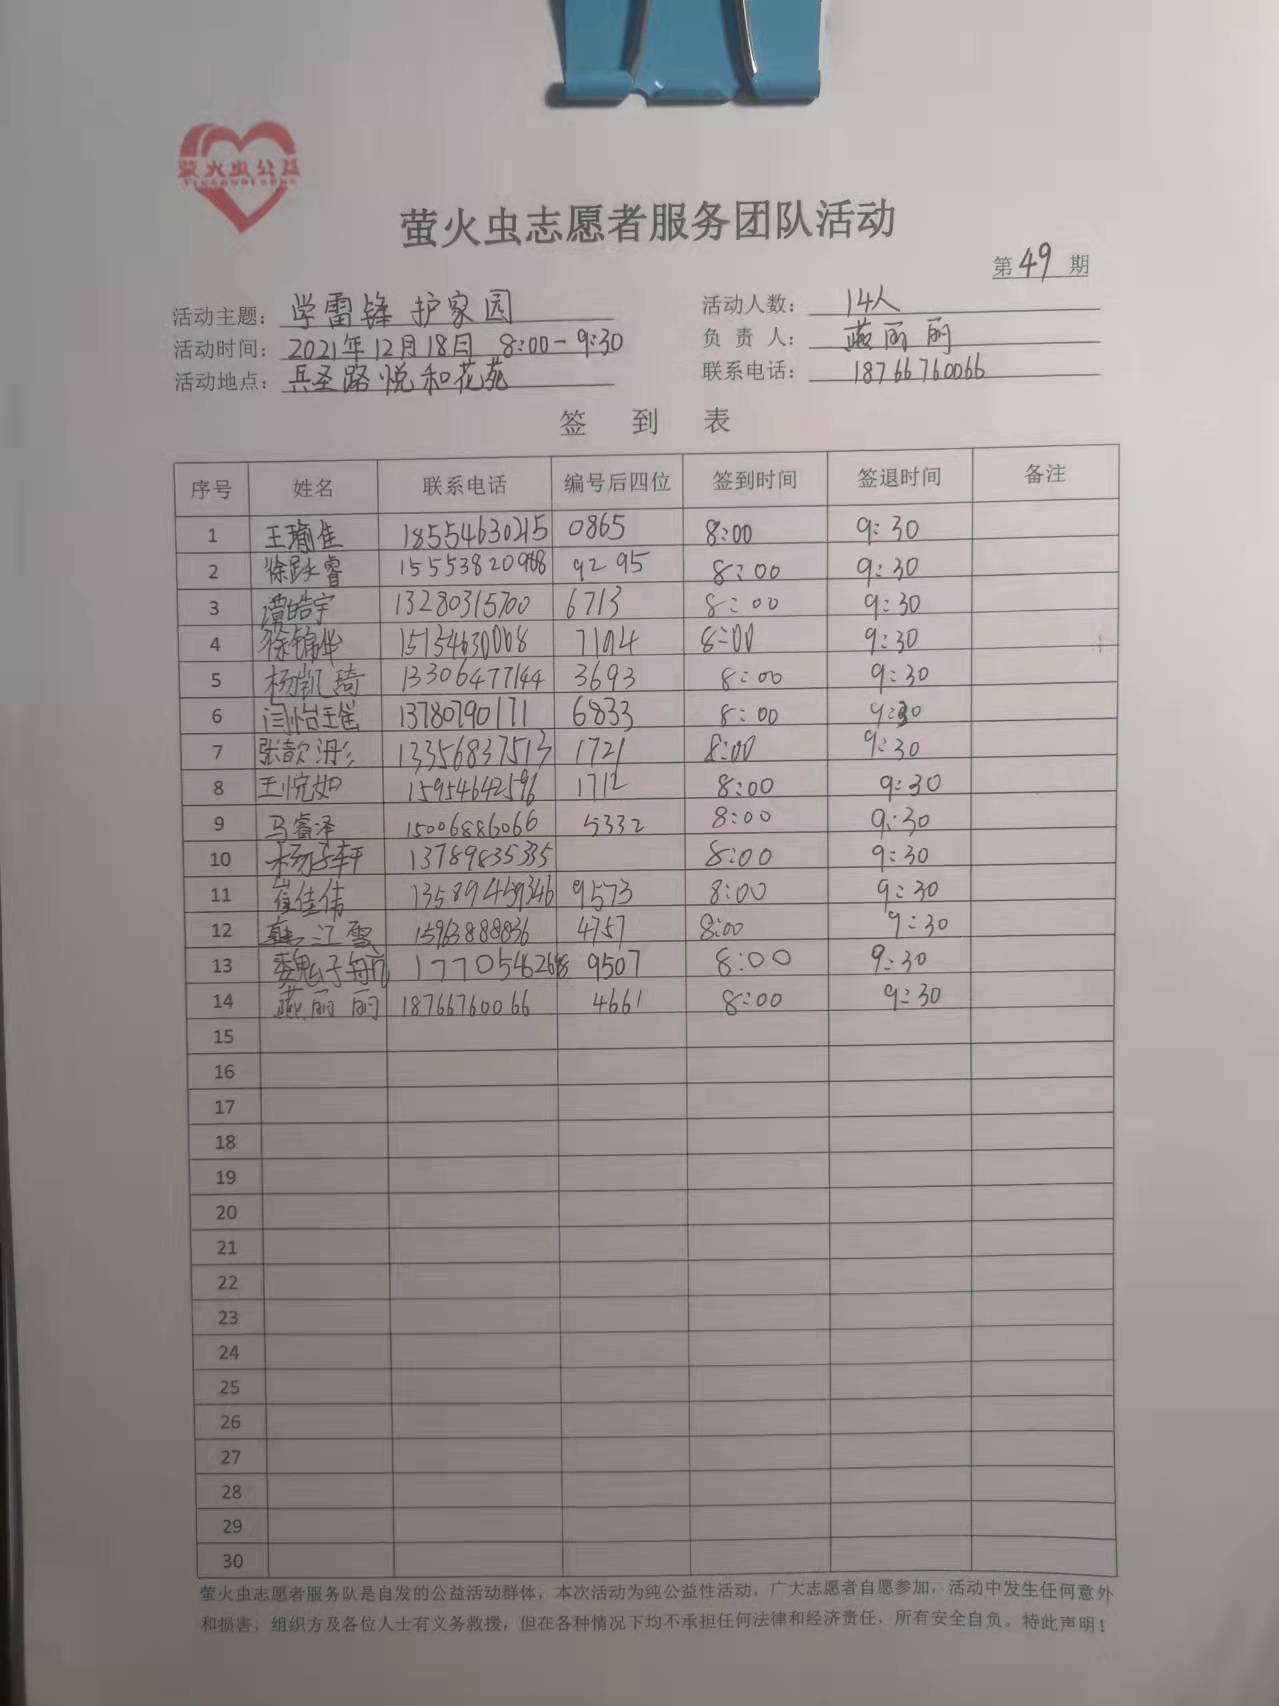 萤火虫公益
萤火虫志愿者服务团队活动
第49期
活动主题：学雷锋 护家园 活动人数：14人
活动时间：2021年12月18日 8:00-9:30 负责人：燕丽丽
活动地点：兵圣路悦和花苑 联系电话：18766760066
签到表
序号 姓名 联系电话 编号后四位 签到时间 签退时间 备注
1 王瑜佳 18554630215 0865 8:00 9:30
2 徐跃睿 9295 8:00 9:30
3 谭皓宇 13280315700 6713 8:00 9:30
4 徐锦烨 15154630008 8:00 9:30
5 杨凯琦 13306477144 3693 8:00 9:30
6 闫怡 13780790171 6833 8:00 9:30
7 张歆 13356837513 1721 8:00 9:30
8 王悦如 15954642596 1712 8:00 9:30
9 马睿泽 15006886066 5332 8:00 9:30
10 杨子轩 13789835335 8:00 9:30
11 崔佳伟 13589459346 9573 8:00 9:30
12 韩江雪 15963888836 4757 8:00 9:30
13 魏子航 9507 8:00 9:30
14 燕丽丽 18766760066 4661 8:00 9:30
15
16
17
18
19
20
21
22
23
24
25
26
27
28
29
30
萤火虫志愿者服务队是自发的公益活动群体，本次活动为纯公益性活动，广大志愿者自愿参加，活动中发生任何意外
和损害，组织方及各位人士有义务救援，但在各种情况下均不承担任何法律和经济责任，所有安全自负。特此声明！